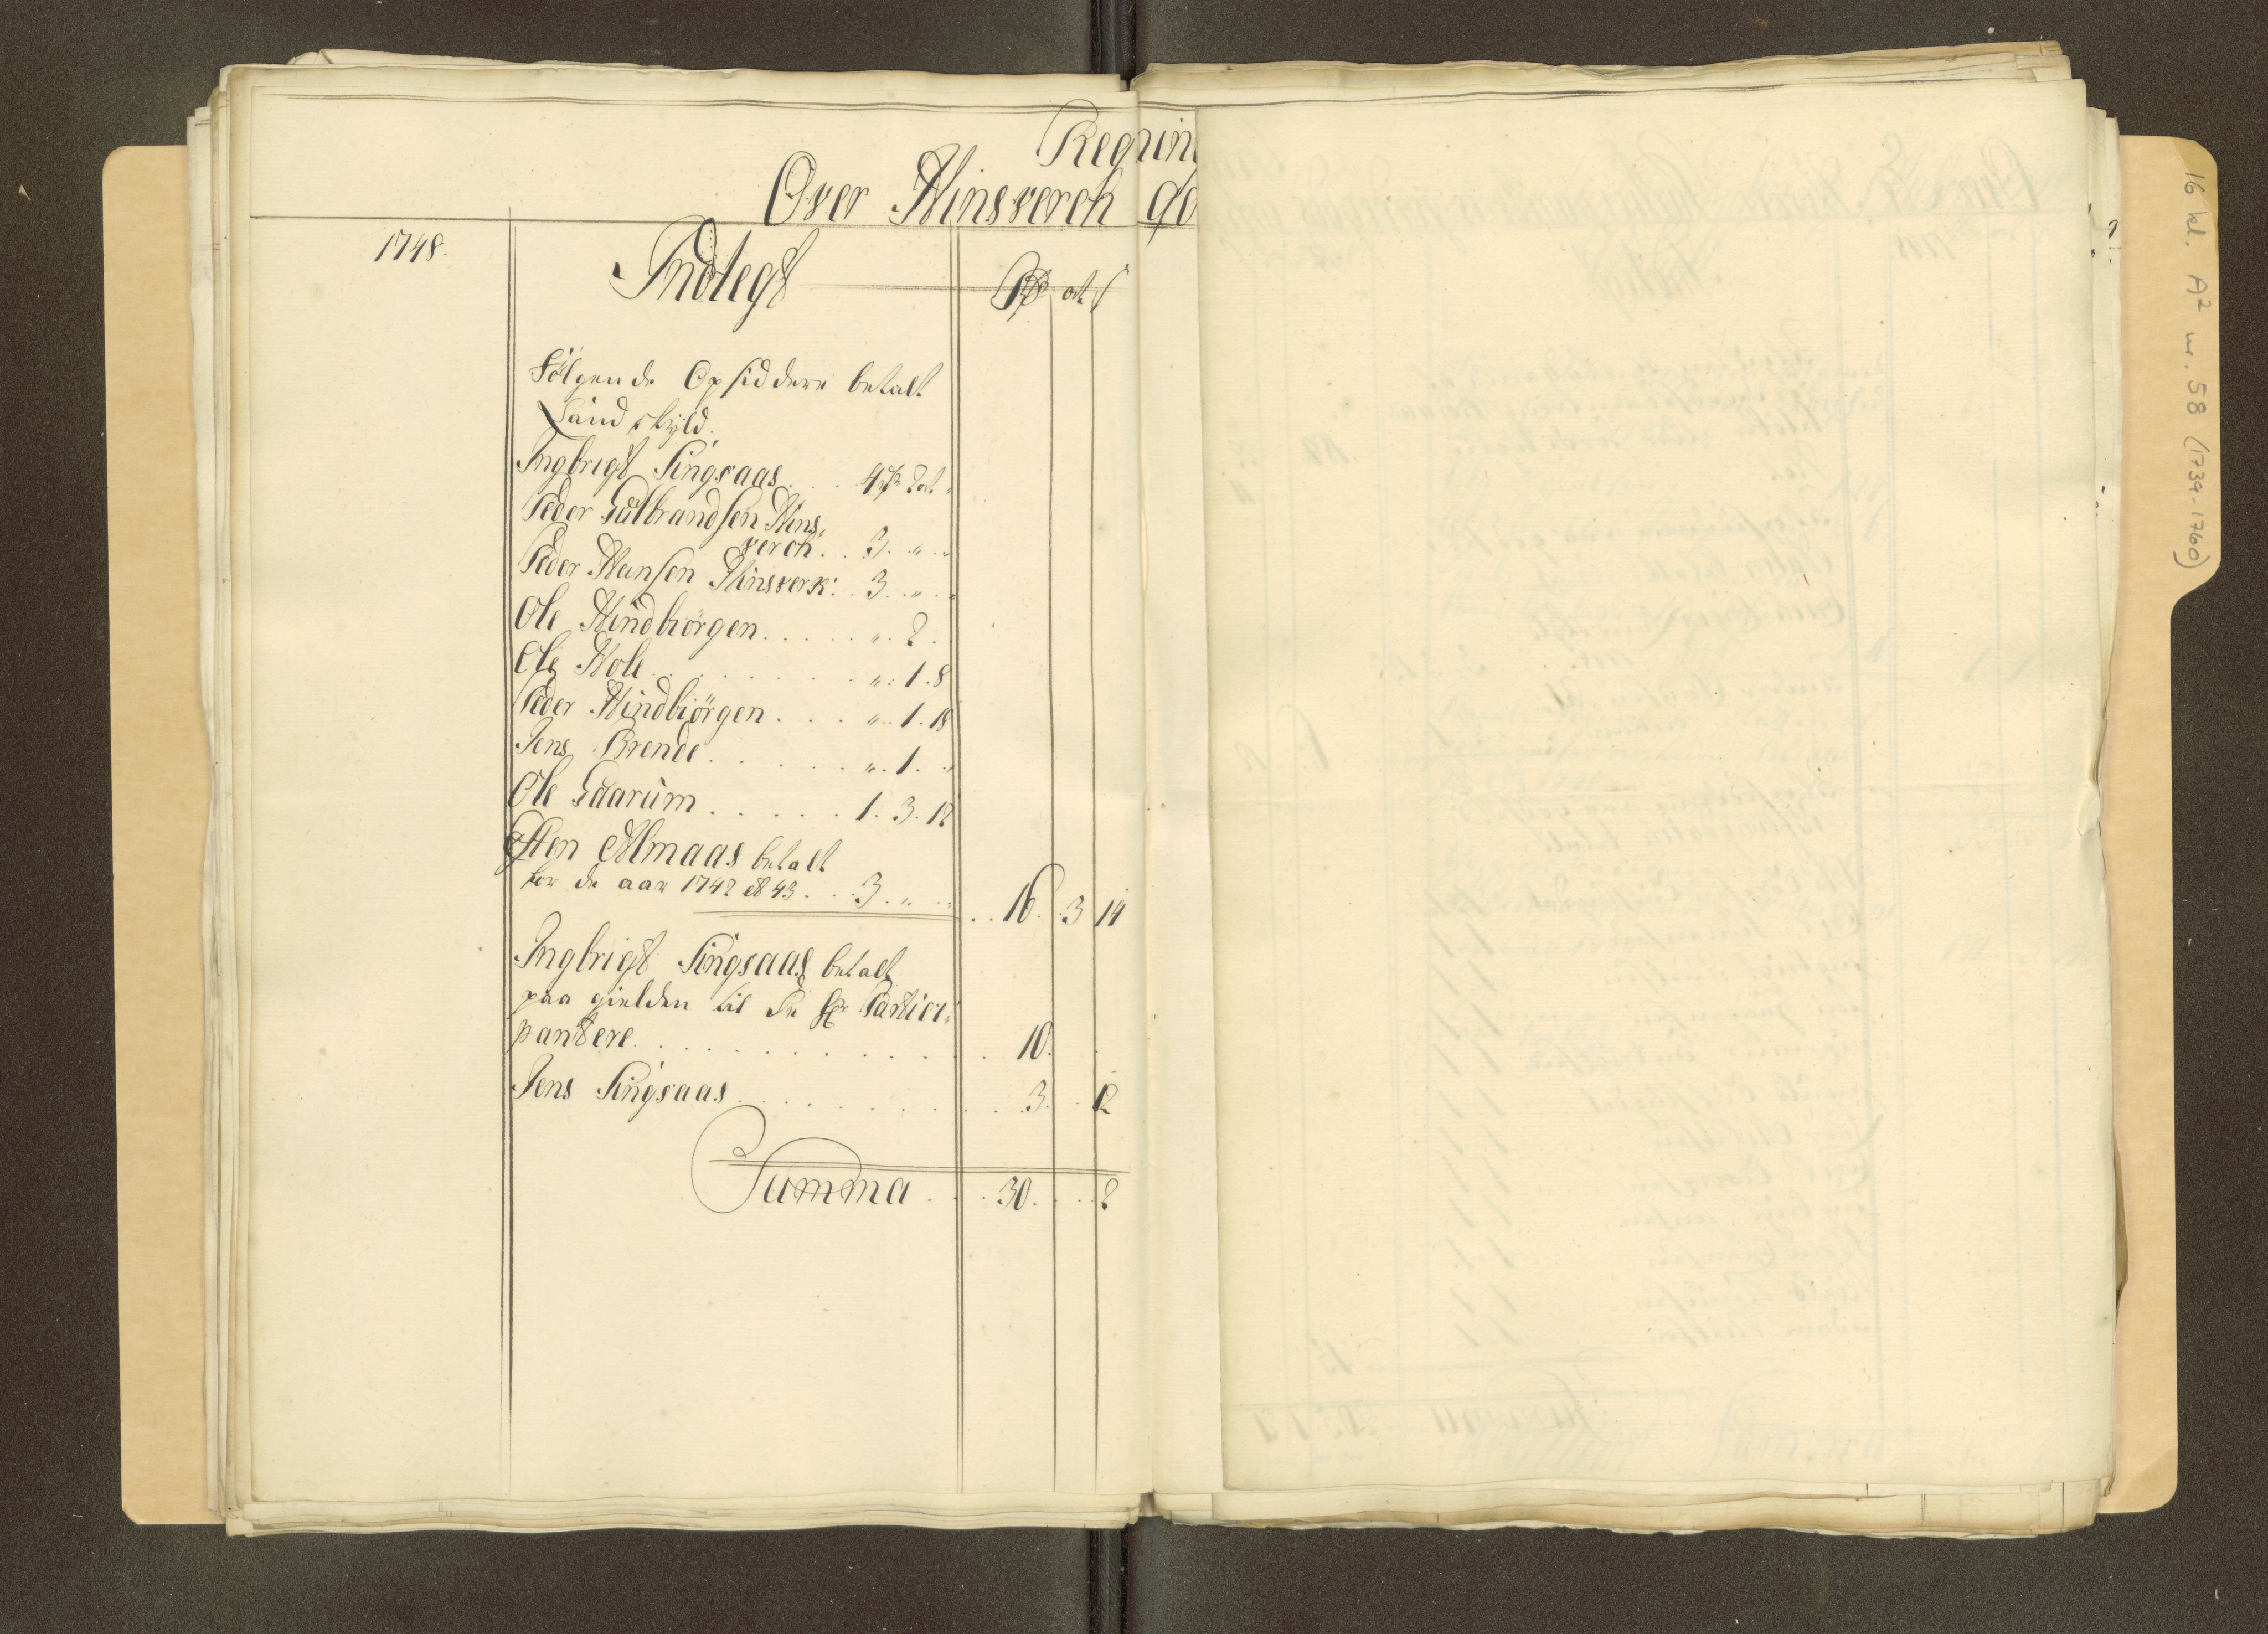 Regnin
Over Hinsverch go
1748.
Indtegt
Rd ort s
Fölgende Opsiddere betalt
Landskyld.
Ingbrigt Singsaas . . . 4 rdr 2 ort
Peder Gulbrandsen Hins„
verch . . 3 . „ . „
Peder Hansen Hinsverk: . 3 . „ .
Ole Hindbiörgen . . . . . „ . 2 .
Ole Hole . . . . . . . „ . 1 . 8
Peder Hindbiörgen . . . „ . 1 . 18
Jens Brende . . . . . „ . 1 . „
Ole Gaarum . . . . . 1 . 3 . 12
Esten Almaas betalt
for de aar 1742 & 43 . . . 3 . „ . . . 16 . 3 14
Ingbrigt Singsaas betalt
paa gielden til de Hr Partici„
pantere . . . . . . . . . . . 10 .
Jens Singsaas . . . . . . . . . 3 . . 12
Summa . . . 30 . . . 2
16 kl. A2 nr. 58 (1739-1760)